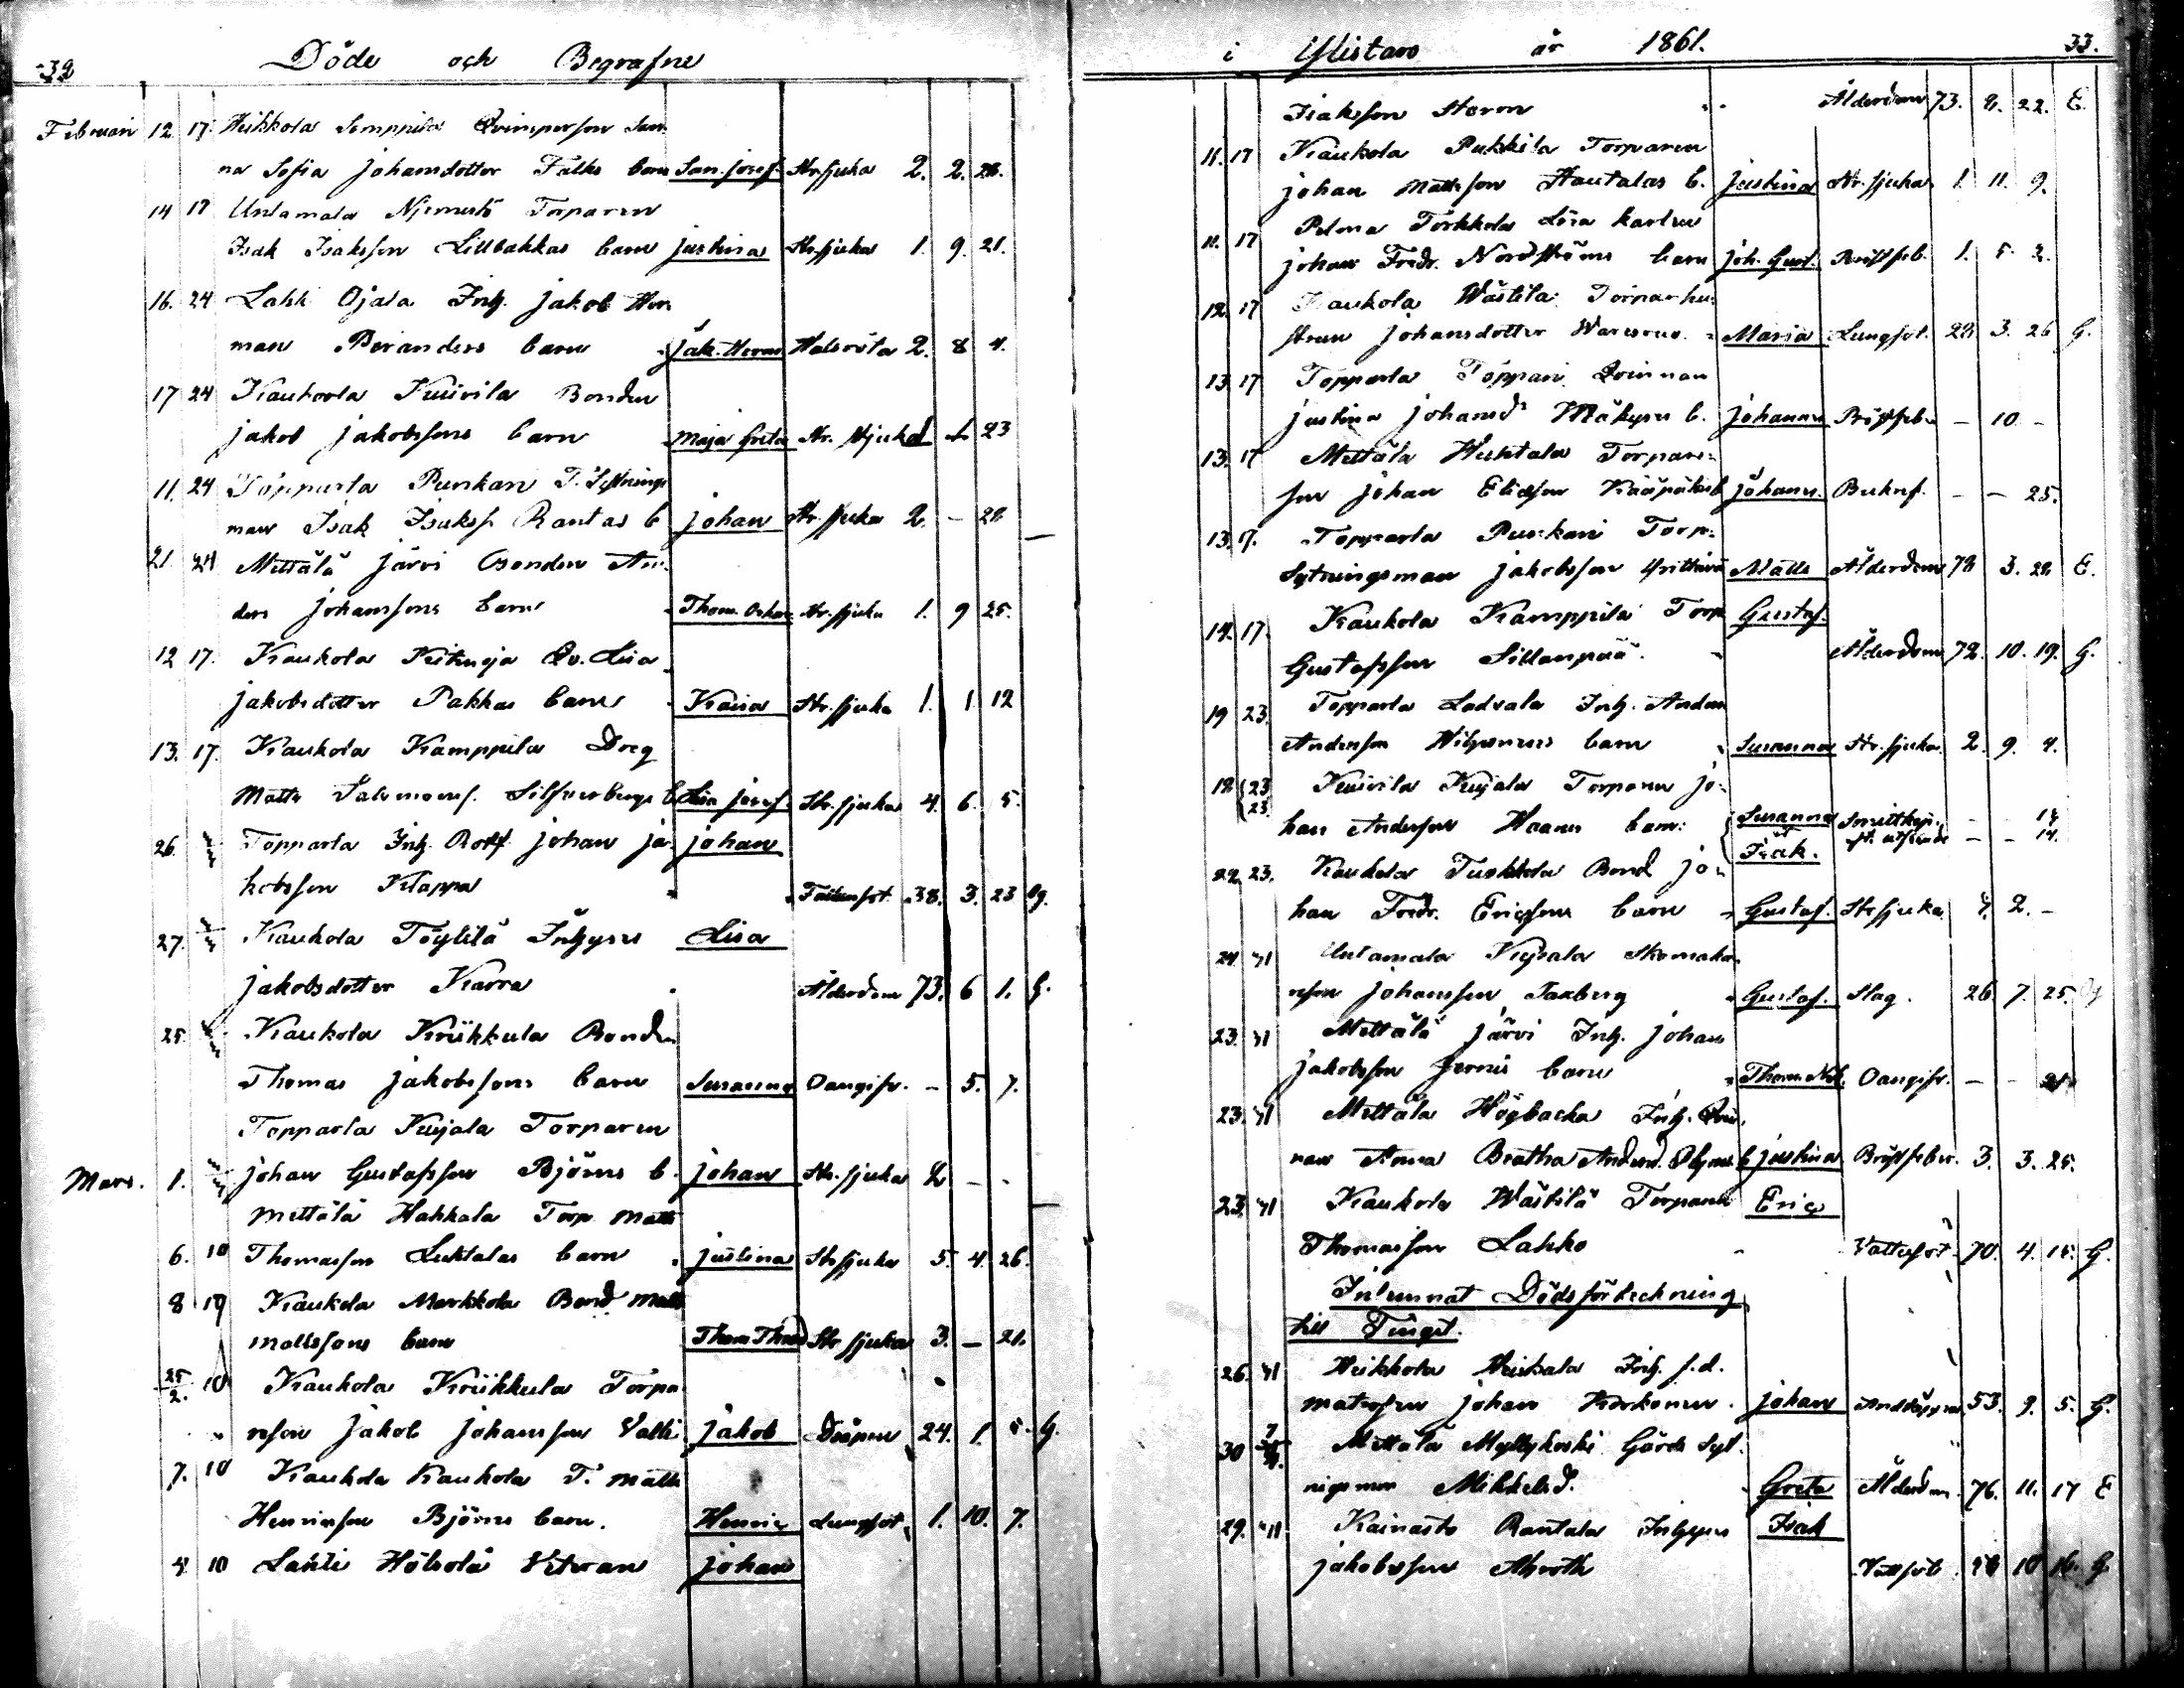 32 Döde och Begrafne
Februari 12. 17. Heikkola Semppila Qvinsperson San
na Sofia Johansdotter Falks barn San. Josef. Str. sjuka 2. 2. 28.
14 17 Untamala Niemistö Torparen
Isak Isaksson Lillbakkas barn Justina Str. sjuka 1. 9. 21.
16. 24 Lahti Ojala Inh. Jakob Her
man Beranders barn Jak. Herm Halsröta 2. 8 4.
17 24 Kaukola Kuivila Bonden
Jakob Jakobssons barn Maja Greta Str. sjuka 23
11. 24 Topparla Punkari T. Sytnings
man Isak Isakss. Rantas b Johan Str. sjuka 2. - 28.
21. 24 Mettälä Järvi Bonden An
ders Johanssons barn Thom. Oskar Str. sjuka 1. 9 25.
12 17. Kaukola Qv. Lisa
Jakobsdotter Pakkas barn Kaisa Str. sjuka 1. 1. 12
13. 17. Kaukola Kamppila Dreg
Matts Salomonss. Silfverbergs b Lisa Josef. Str. sjuka 4. 6. 5.
26. Topparla Inh. Johan Ja Johan
kobsson Klappa 38. 3. 23 Og.
27. Kaukola Töylilä Inhyses Lisa
Jakobsdotter Karra Ålderdom 73. 6 1. G.
25. Kaukola Kriikkula Bonden
Thomas Jakobssons barn Susanna Oangifv. - 5. 7.
Topparla Kujala Torparen
Mars. 1. Johan Gustafsson Björns b. Johan Str. sjuka 2 - -
Mettälä Hakkala Torp Matts
6. 10 Thomasson Luhtalas barn Justina Str. sjuka 5. 4. 26.
8 10 Kaukola Markkola Bond Matts
Mattssons barn Thom Str sjuka 3. - 21.
25/2. 10 Kaukola Kriikkula Torpa
reson Jakob Johansson Valli Jakob 24. 1. 5. G.
7. 10 Kaukola Kaukola T. Matts
Henriksson Björns barn. Henric Lungsot 1. 10. 7.
4 10 Lahti Hölsölä Johan
i Ylistaro år 1861. 33.
Isaksson Ålderdom 73. 8. 22. E.
11. 17 Kaukola Pukkila Torparen
Johan Mattsson Hautalas b. Justina Str. sjuka 1. 11. 9.
11. 17 Pelma Torkkola Lösa karlen
Johan Fredr. Nordströms barn Joh. Gust. Bröstfeb. 1. 5. 2.
12. 17 Kaukola Wästilä Torparhu
strun Johansdotter Maria Lungsot. 28. 3. 26 G.
13. 17 Topparla Toppari Qvinnan
Justina Johansd. Mäkynes b. Johannes Bröstfeb. - 10. -
13. 17 Mettälä Huhtala Torpare
son Johan Eliasson b Johann. - - 25.
13. 17. Topparla Punkari Torp.
Sytningsman Jakobsson Matts Ålderdom 78 3. 28. E.
14. 17. Kaukola Kamppila Torp Gustaf.
Gustafsson Sillanpää. Ålderdom 72. 10. 19. G.
19 23. Topparla Ladvala Inh. Anders
Andersson barn Susanna Str. sjuka. 2. 9. 4.
18. 23 23. Kuivila Kujala Torparen Jo
han Andersson Haanes barn: Susanna - - 14.
Isak. - - 14.
22. 23. Kaukola Bond Jo
han Fredr. Ericssons barn Gustaf. Str sjuka 2. -
24. Untamala Skomaka
reson Johansson Taxberg Gustaf. Slag. 26. 7. 25. Og
23. Mettälä Järvi Inh. Johan
Jakobsson barn Thom. Nik. Oangifv. - -
23. Mettälä Högbacka Inh. Qvin
nan Anna Beatha Andersd. b Justina Bröstfeber. 3. 3. 25.
23. Kaukola Wästilä Torparen Eric
Thomasson Lahko Vattusot. 70. 4. 15. G.
Inlemnat Dödsförteckning
till Tinget.
26. Heikkola Heikkala Inh. f.d.
matrosen Johan Korkonen. Johan Andtäppa 53. 9. 5. G.
30 Mettälä Myllykoski Gårds Syt.
Mikkelsd. Greta Ålderdom. 76. 11. 17 E
29. Kainasto Rantala Inhyses Isak
Jakobsson Ahroth Vattsot. 10 16. G.